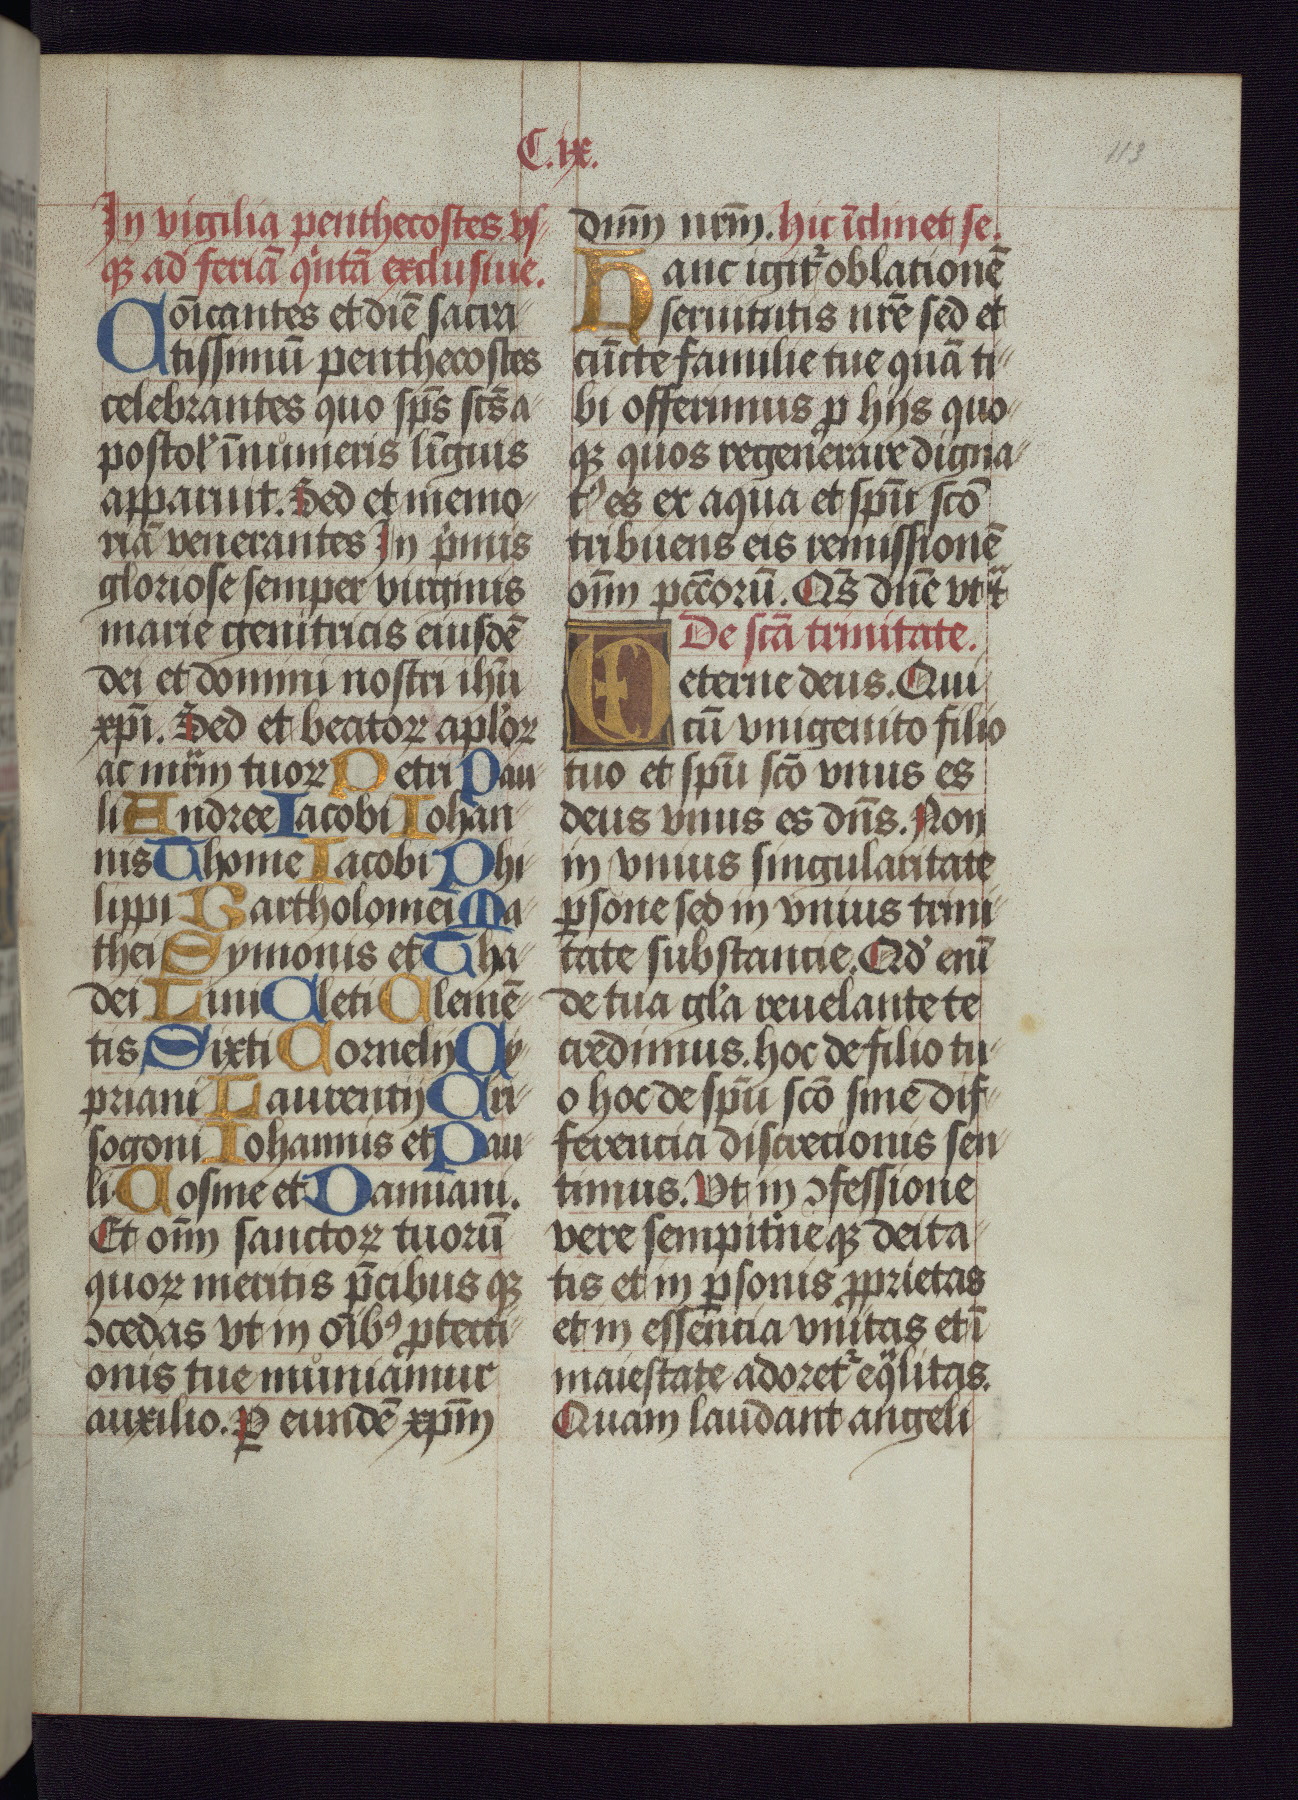 C.ix.
113
In vigilia penthecostes vs-
qꝫ ad feriā qͥntā exclusiue.
Cōicantes et diē sacra-
tissimū penthecostes
celebrantes quo sp̄s sc̄s a-
postol' īnumeris līguis
apparuit. Sed et memo-
riā venerantes In pͥmis
gloriose semper virginis
marie genitricis eiusdē
dei et domini nostri ihū
xp̄i. Sed et beatoꝝ apl'oꝝ
ac mr̄m tuoꝝ Petri Pau-
li Andree Iacobi Iohan-
nis Thome Iacobi Phi-
lippi Bartholomei Ma-
thei Symonis et Tha-
dei Lini Cleti Clemē-
tis Sixti Cornelij Cy-
priani Laurentij Cri-
sogoni Iohannis et Pau-
li Cosme et Damiani.
Et oīm sanctoꝝ tuorū
quoꝝ meritis p̄cibus qꝫ
ꝯcedas vt in oībꝰ ꝓtecti-
onis tue muniamur
auxilio. P eundē xp̄m
dn̄m nr̄m. Hic īclinet se.
Hanc igit᷑ oblationē
seruitutis nr̄e sed et
cūcte familie tue quā ti-
bi offerimus ꝓ hijs quo-
qꝫ quos regenerare digna-
tꝰ es ex aqua et sp̄u sc̄o
tribuens eis remissionē
oīm pcc̄orū. Qs̄ dn̄e vt
De scā trinitate.
eterne deus. Qui
cū vnigenito filio
tuo et sp̄u sc̄o vnus es
deus vnus es dn̄s. Non
in vnius singularitate
ꝑsone sed in vnius trini-
tate substancie. Qd' enī
de tua gl'a reuelante te
credimus. hoc de filio tu-
o hoc de sp̄u sc̄o sine dif-
ferencia discrecionis sen-
timus. Vt in ꝯfessione
vere sempitⁱne qꝫ deita-
tis et in ꝑsonis ꝓprietas
et in essencia vnitas et ī
maiestate adoret᷑ eqͣlitas.
Quam laudant angeli